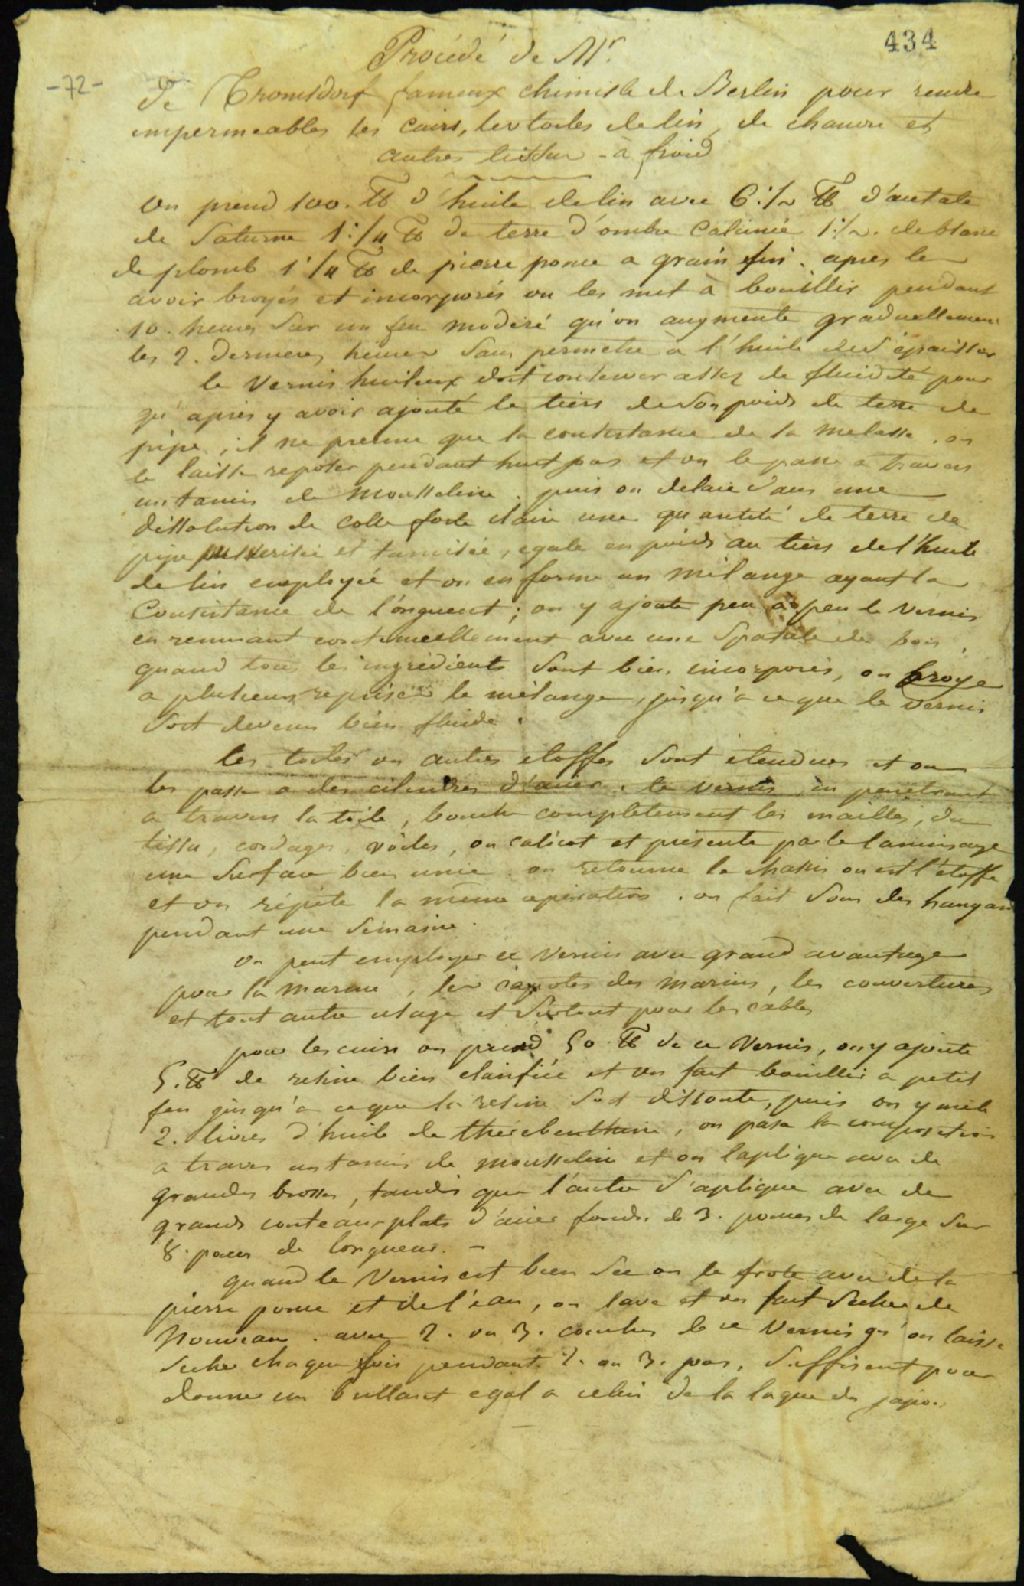 434
-72-
Procédé de Mr
De Tromsdorf fameux chimiste de Berlin pour rendre
impermeables les cuirs, les toiles de lin, de chanvre et
autres tissus - à froid
on prend 100. ℔ d'huile de lin avec 6 1/2 ℔ d'acetate
de Saturne 1 1/4 ℔ de terre d'ombre Calcinée 1 1/2. de blanc
de plomb 1 1/4 ℔ de pierre ponce a grain fin. apres les
avoir broyés et incorporés on les met à bouillir pendant
10. heures sur un feu modéré qu'on augmente graduellement
les 2. dernieres heures sans permettre à l'huile de s'épaissir
le vernis huileux doit conserver assez de fluidité pour
qu'après y avoir ajouté le tiers de son poids de terre de
pipe, il ne prenne que la consistance de la melasse. on
le laisse reposer pendant huit jours et on le passe a travers
un tamis de mousseline. puis on delaie dans une
dissolution de colle forte claire une quantité de terre de
pipe pulverisée et tamisée, egale en poids au tiers de l'huile
de lin employée et on en forme un mélange ayant la
Consistance de l'onguent; on y ajoute peu a peu le vernis
en remuant continuellement avec une Spatule de bois,
quand tous les ingredients sont bien incorporés, on broye
a plusieurs reprises le mélange, jusqu'a ce que le vernis
soit devenu bien fluide.
les toiles ou autres étoffes sont étendues et on
les passe a des cilindres d'acier. le vernis en penetrant
a travers la toile, bouche completement les mailles, du
tissu, cordages, voiles, ou calicot et presente par le laminage
une surface bien unie. on retourne le chassis ou est l'étoffe
et on répéte la même operation. on fait sous des hangars
pendant une semaine.
on peut employer ce vernis avec grand avantage
pour la marine, les capotes des marins, les couvertures
et tout autre usage et surtout pour les cables
pour les cuirs on prend 50 ℔ de ce vernis, on y ajoute
5. ℔ de resine bien clarifiée et on fait bouillir a petit
feu jusqu'a ce que la resine soit dissoute, puis on y met
2. livres d'huile de therebenthine, on passe la composition
a travers un tamis de mousseline et on l'aplique avec de
grandes brosses, tandis que l'autre s'aplique avec de
grands couteaux plats d'acier fondu de 3. pouces de large sur
8. pouces de longueur. -
quand le vernis est bien sec on le frote avec de la
pierre ponce et de l'eau, on lave et on fait secher de
nouveau. avec 2. ou 3. couches de ce vernis qu'on laisse
secher chaque fois pendant 2. ou 3. jours, suffisent pour
donner un brillant egal a celui de la laque du japon.